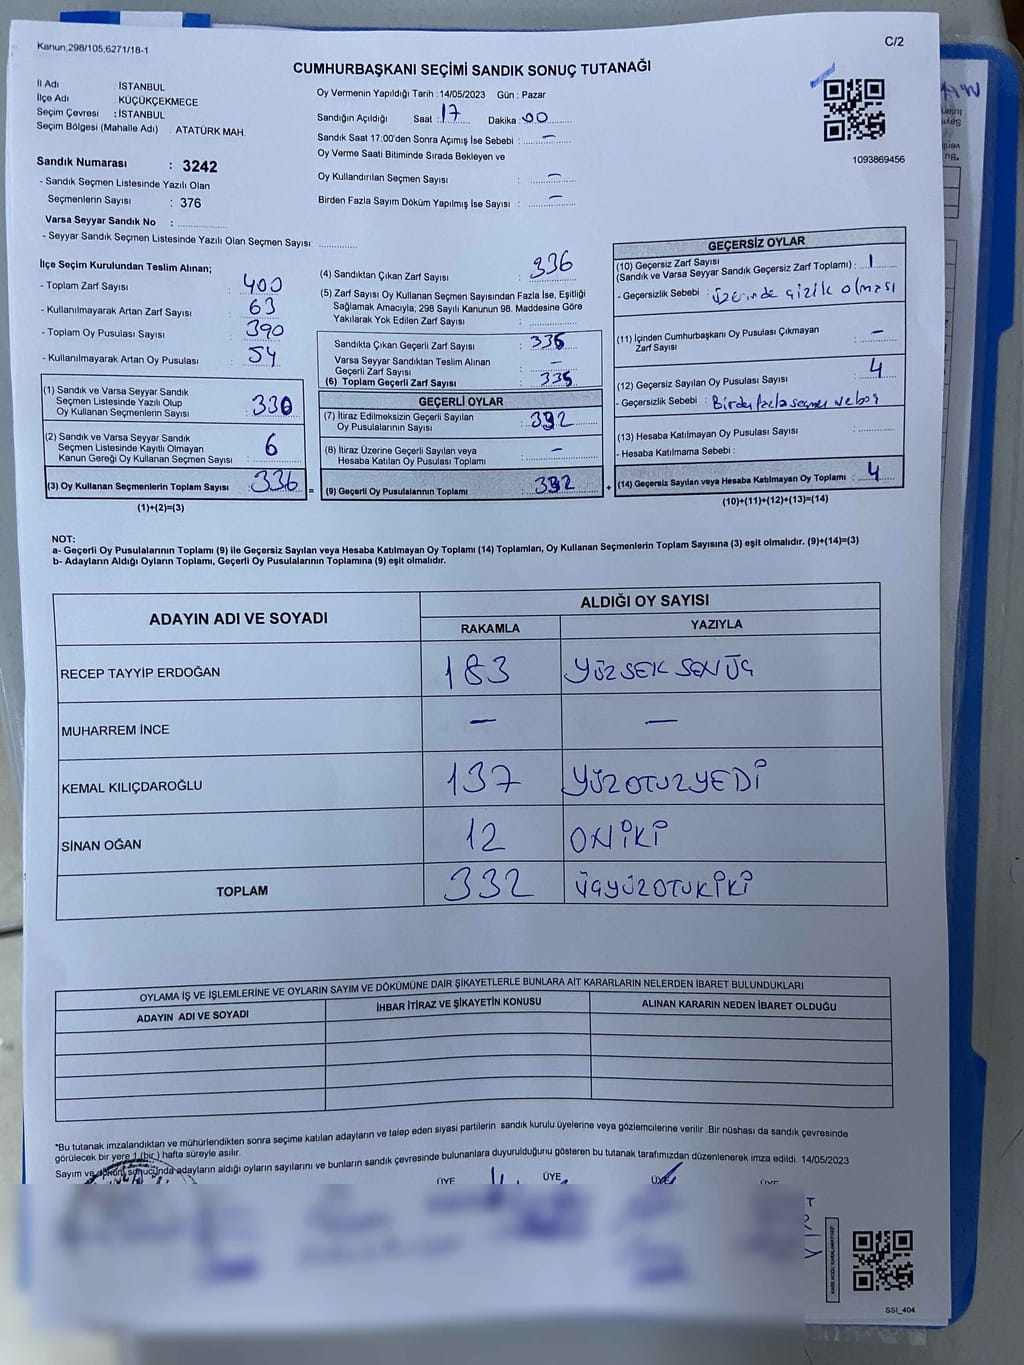 Kanun;298/105,6271/18-1
C/2
CUMHURBAŞKANI SEÇİMİ SANDIK SONUÇ TUTANAĞI
İl Adı : İSTANBUL
İlçe Adı : KÜÇÜKÇEKMECE
Seçim Çevresi : İSTANBUL
Seçim Bölgesi (Mahalle Adı) . ATATÜRK MAH.
Sandık Numarası : 3242
- Sandık Seçmen Listesinde Yazılı Olan
Seçmenlerin Sayısı : 376
Varsa Seyyar Sandık No :
- Seyyar Sandık Seçmen Listesinde Yazılı Olan Seçmen Sayısı:
Oy Vermenin Yapıldığı Tarih : 14/05/2023 Gün : Pazar
Sandığın Açıldığı Saat : 17 Dakika : 00
Sandık Saat 17:00'den Sonra Açımış İse Sebebi : —
Oy Verme Saati Bitiminde Sırada Bekleyen ve
Oy Kullandırılan Seçmen Sayısı : —
Birden Fazla Sayım Döküm Yapılmış İse Sayısı : —
1093869456
İlçe Seçim Kurulundan Teslim Alınan;
- Toplam Zarf Sayısı : 400
- Kullanılmayarak Artan Zarf Sayısı : 63
- Toplam Oy Pusulası Sayısı : 390
- Kullanılmayarak Artan Oy Pusulası : 54
(1) Sandık ve Varsa Seyyar Sandık
Seçmen Listesinde Yazılı Olup
Oy Kullanan Seçmenlerin Sayısı : 330
(2) Sandık ve Varsa Seyyar Sandık
Seçmen Listesinde Kayıtlı Olmayan
Kanun Gereği Oy Kullanan Seçmen Sayısı : 6
(3) Oy Kullanan Seçmenlerin Toplam Sayısı : 336
(1)+(2)=(3)
(4) Sandıktan Çıkan Zarf Sayısı : 336
(5) Zarf Sayısı Oy Kullanan Seçmen Sayısından Fazla İse, Eşitliği
Sağlamak Amacıyla, 298 Sayılı Kanunun 98. Maddesine Göre
Yakılarak Yok Edilen Zarf Sayısı :
Sandıkta Çıkan Geçerli Zarf Sayısı :
Varsa Seyyar Sandıktan Teslim Alınan
Geçerli Zarf Sayısı : —
(6) Toplam Geçerli Zarf Sayısı :
GEÇERLİ OYLAR
(7) İtiraz Edilmeksizin Geçerli Sayılan
Oy Pusulalarının Sayısı : 332
(8) İtiraz Üzerine Geçerli Sayılan veya
Hesaba Katılan Oy Pusulası Toplamı : —
= (9) Geçerli Oy Pusulalarının Toplamı : 332
GEÇERSİZ OYLAR
(10) Geçersiz Zarf Sayısı
(Sandık ve Varsa Seyyar Sandık Geçersiz Zarf Toplamı) : 1
- Geçersizlik Sebebi : üzerinde çizik olması
(11) İçinden Cumhurbaşkanı Oy Pusulası Çıkmayan
Zarf Sayısı : —
(12) Geçersiz Sayılan Oy Pusulası Sayısı : 4
- Geçersizlik Sebebi : Birden fazla seçme ve boş
(13) Hesaba Katılmayan Oy Pusulası Sayısı :
- Hesaba Katılmama Sebebi :
+ (14) Geçersiz Sayılan veya Hesaba Katılmayan Oy Toplamı : 4
(10)+(11)+(12)+(13)=(14)
NOT:
a- Geçerli Oy Pusulalarının Toplamı (9) ile Geçersiz Sayılan veya Hesaba Katılmayan Oy Toplamı (14) Toplamları, Oy Kullanan Seçmenlerin Toplam Sayısına (3) eşit olmalıdır. (9)+(14)=(3)
b- Adayların Aldığı Oyların Toplamı, Geçerli Oy Pusulalarının Toplamına (9) eşit olmalıdır.
ADAYIN ADI VE SOYADI ALDIĞI OY SAYISI
RAKAMLA YAZIYLA
RECEP TAYYİP ERDOĞAN 183 YÜZSEKSENÜÇ
MUHARREM İNCE — —
KEMAL KILIÇDAROĞLU 137 YÜZOTUZYEDİ
SİNAN OĞAN 12 ONİKİ
TOPLAM 332 ÜÇYÜZOTUKİKİ
OYLAMA İŞ VE İŞLEMLERİNE VE OYLARIN SAYIM VE DÖKÜMÜNE DAİR ŞİKAYETLERLE BUNLARA AİT KARARLARIN NELERDEN İBARET BULUNDUKLARI
ADAYIN ADI VE SOYADI İHBAR İTİRAZ VE ŞİKAYETİN KONUSU ALINAN KARARIN NEDEN İBARET OLDUĞU
*Bu tutanak imzalandıktan ve mühürlendikten sonra seçime katılan adayların ve talep eden siyasi partilerin sandık kurulu üyelerine veya gözlemcilerine verilir .Bir nüshası da sandık çevresinde
görülecek bir yere 1 (bir ) hafta süreyle asılır.
Sayım ve döküm sonucunda adayların aldığı oyların sayılarını ve bunların sandık çevresinde bulunanlara duyurulduğunu gösteren bu tutanak tarafımızdan düzenlenerek imza edildi. 14/05/2023
ÜYE ÜYE ÜYE ÜYE
SSI_404